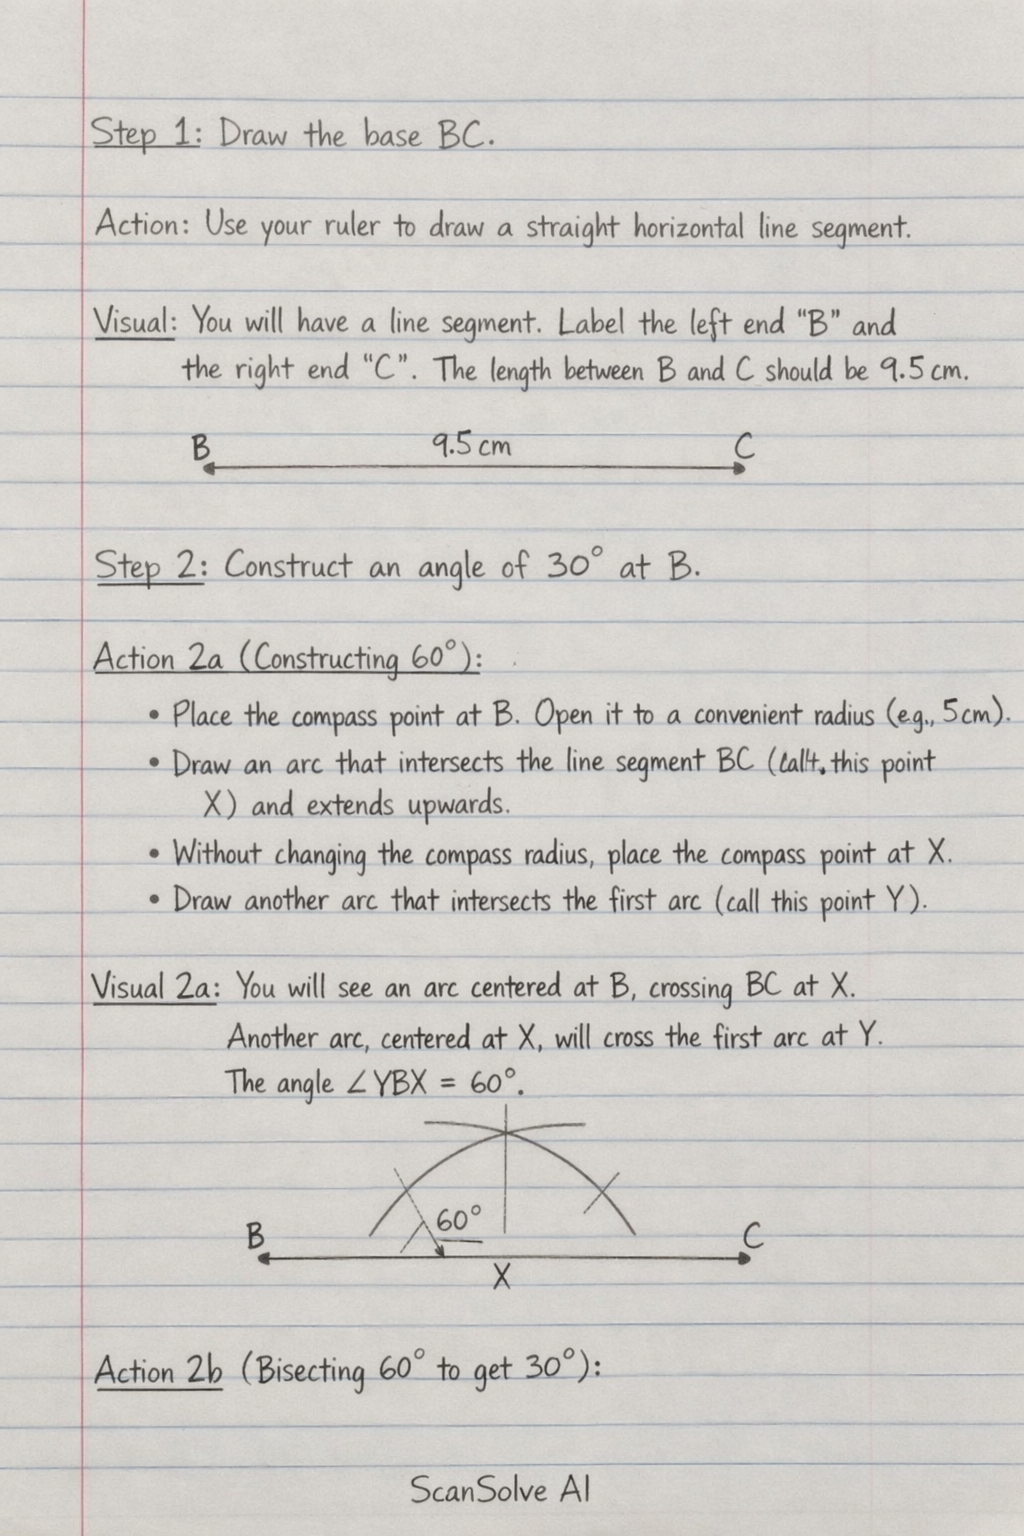 Step 1: Draw the base BC.
Action: Use your ruler to draw a straight horizontal line segment.
Visual: You will have a line segment. Label the left end "B" and
the right end "C". The length between B and C should be 9.5 cm.
B 9.5 cm C
Step 2: Construct an angle of 30° at B.
Action 2a (Constructing 60°):
• Place the compass point at B. Open it to a convenient radius (e.g., 5cm).
• Draw an arc that intersects the line segment BC ( this point
X) and extends upwards.
• Without changing the compass radius, place the compass point at X.
• Draw another arc that intersects the first arc (call this point Y).
Visual 2a: You will see an arc centered at B, crossing BC at X.
Another arc, centered at X, will cross the first arc at Y.
The angle ∠YBX = 60°.
60°
B C
X
Action 2b (Bisecting 60° to get 30°):
ScanSolve AI